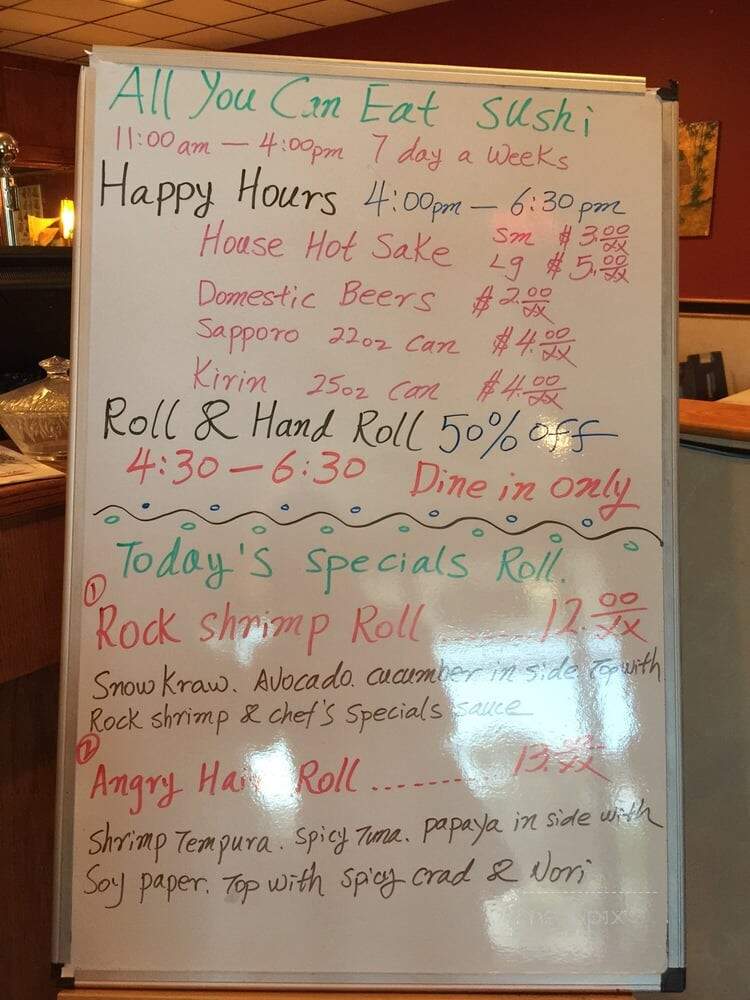 All You Can Eat Sushi
11:00am — 4:00pm 7 day a weeks
Happy Hours 4:00pm — 6:30pm
House Hot Sake sm $3.00/xx
Lg $5.00/xx
Domestic Beers $2.00/xx
Sapporo 22oz can $4.00/xx
Kirin 25oz can $4.00/xx
Roll & Hand Roll 50% off
4:30 — 6:30 Dine in only
Today's Specials Roll.
① Rock Shrimp Roll ........ 12.00/xx
Snow Kraw. Avocado. cucumber in side Top with
Rock shrimp & chef's Specials sauce
② Angry Roll ........ 13.
Shrimp Tempura. Spicy Tuna. papaya in side with
Soy paper. Top with spicy crad & Nori